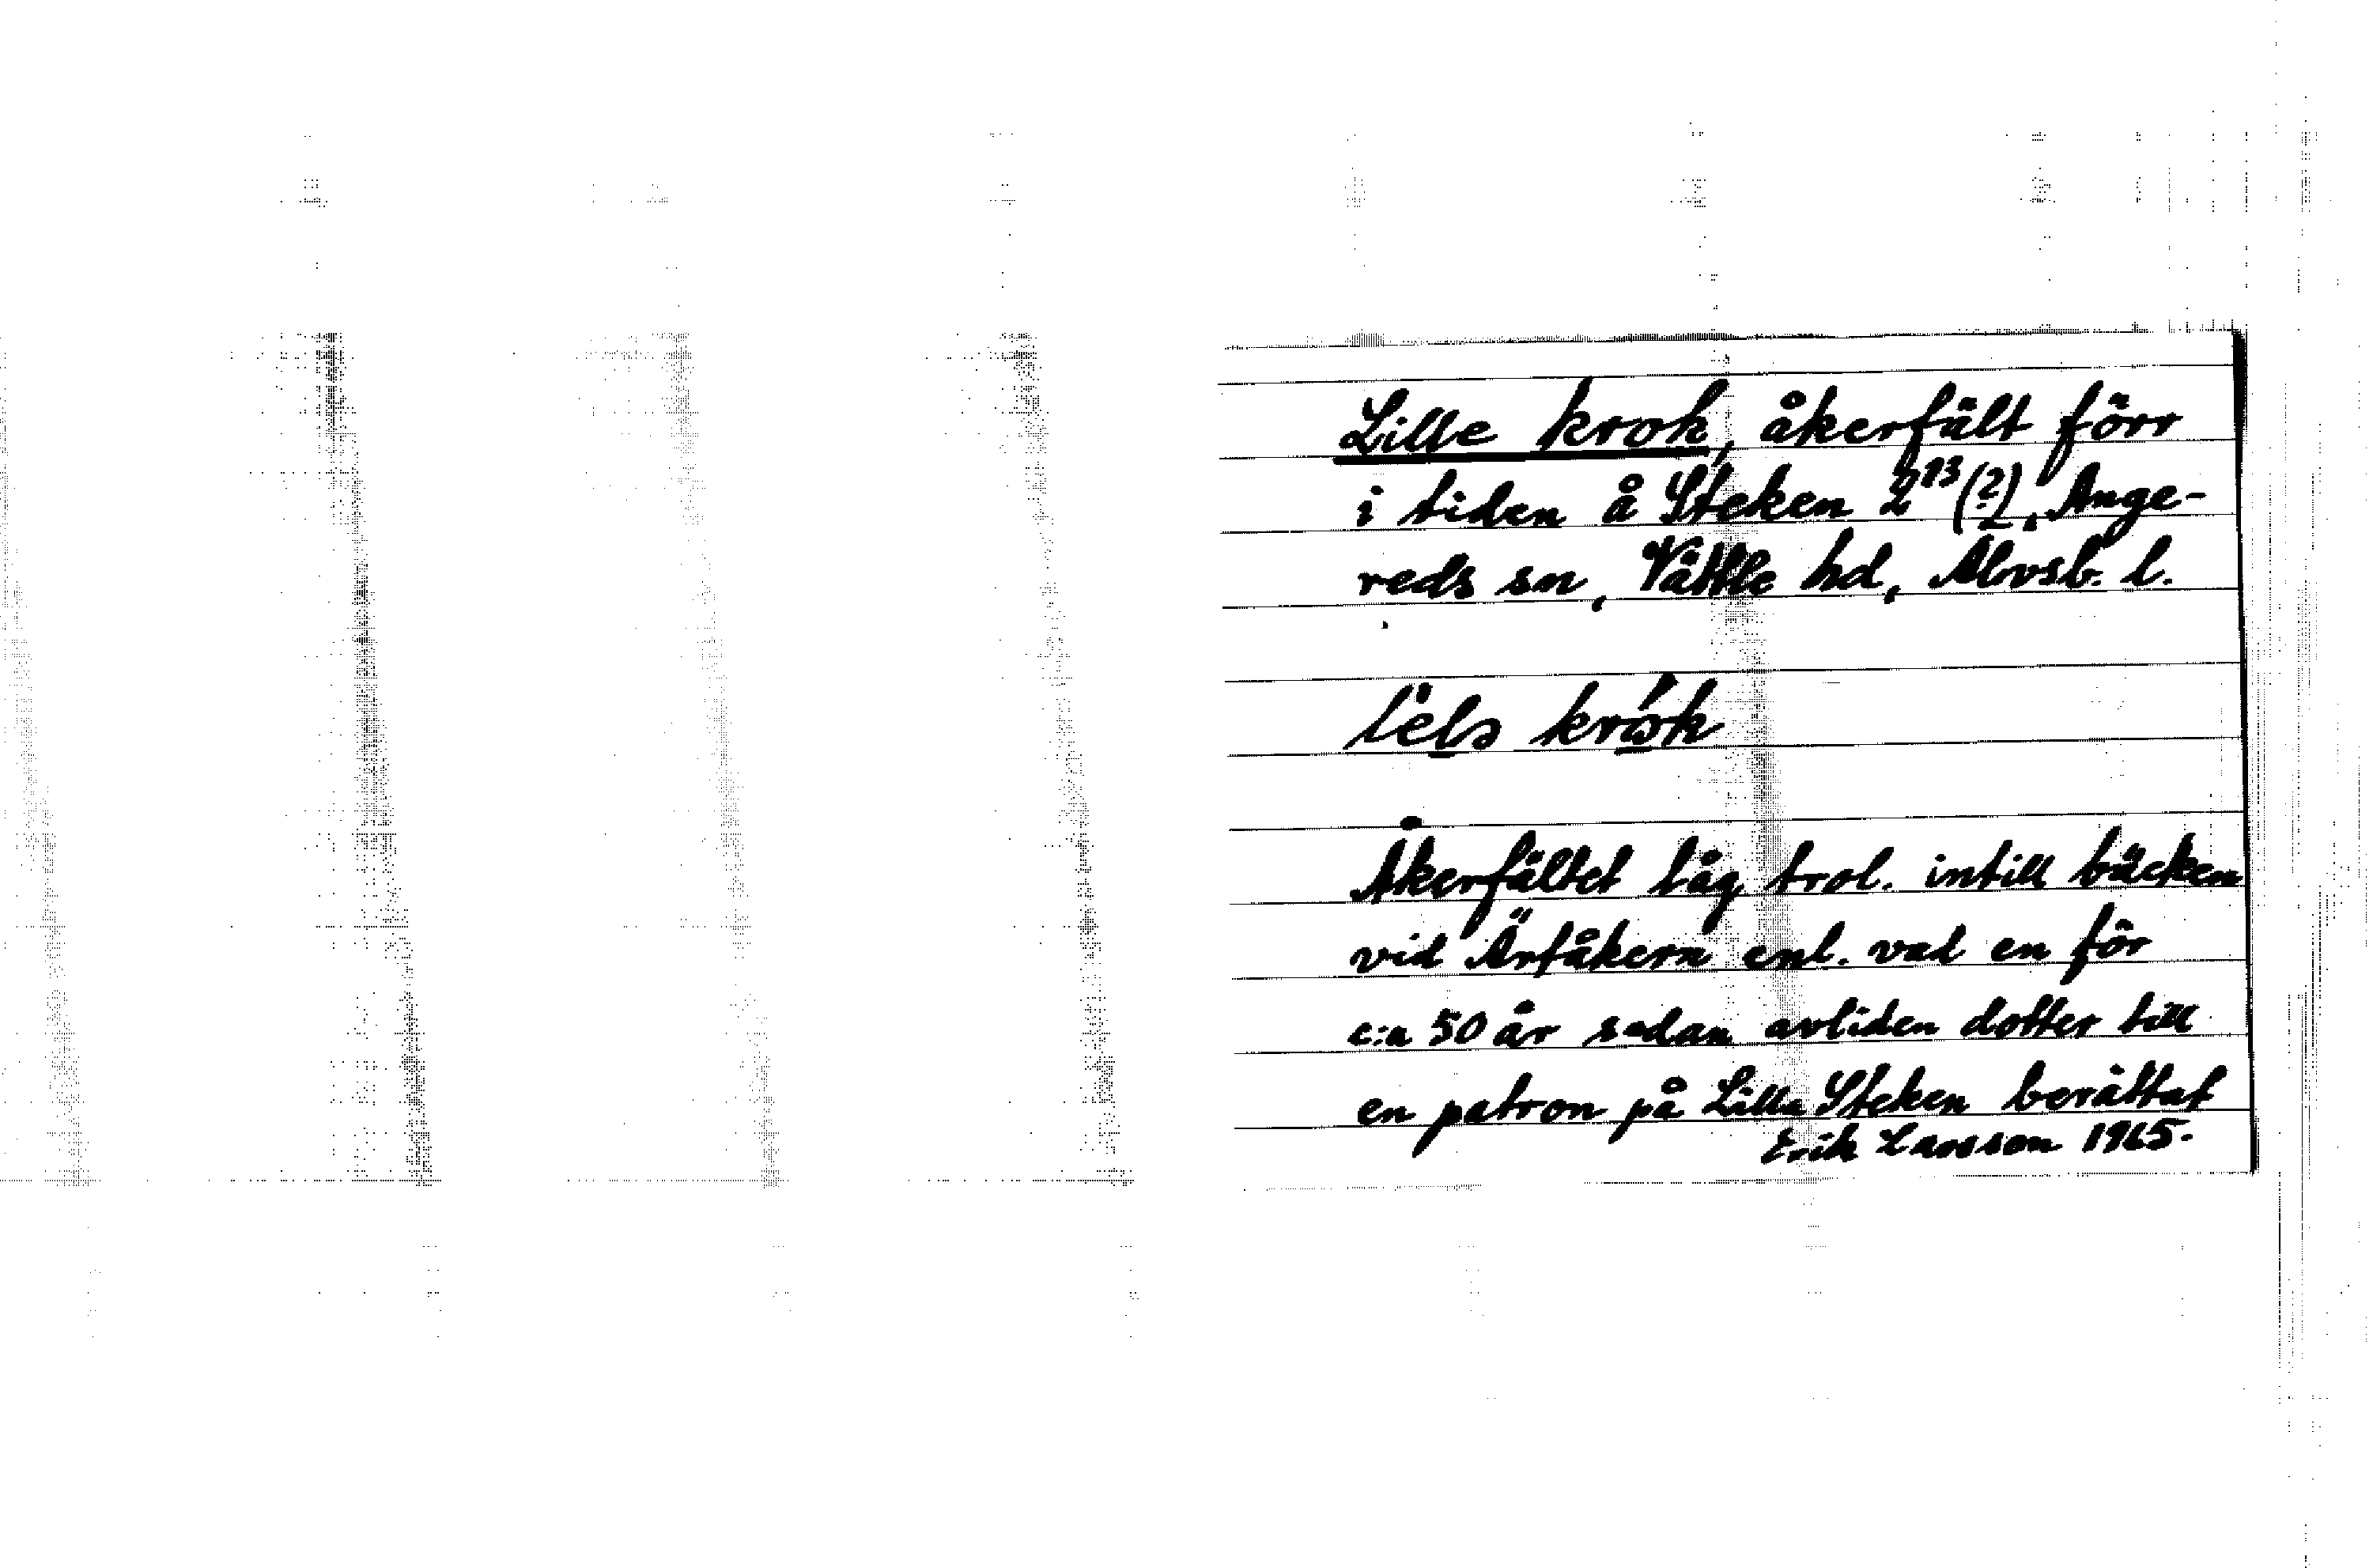 Lille krok, åkerfält förr
i tiden å Steken 2¹³(?), Ange-
reds sn, Vättle hd, Älvsb. l.
krok
Åkerfältet låg trol. intill bäcken
vid Ärtåkern enl. vad en för
c:a 50 år sedan avliden dotter till
en patron på Lilla Steken berättat
Erik Larsson 1965.